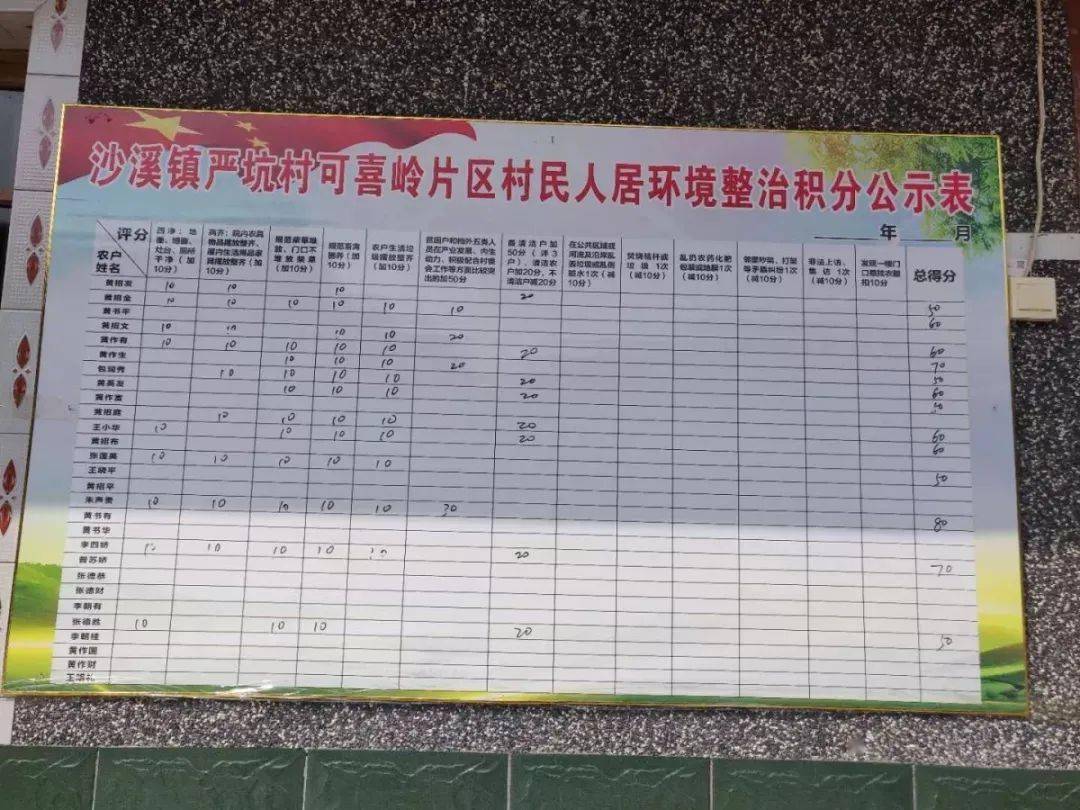 沙溪镇严坑村可喜岭片区村民人居环境整治积分公示表
年 月
评分
农户
姓名
四净：地面、墙面、灶台、厕所干净（加10分）
两齐：院内农具物品摆放整齐、屋内生活用品家具摆放整齐（加10分）
规范柴草堆放、门口不堆放柴草（加10分）
规范畜禽圈养（加10分）
农户生活垃圾摆放整齐（加10分）
贫困户和档外五类人员在产业发展、内生动力、积极配合村委会工作等方面比较突出的加50分
最清洁户加50分（评3户），清洁农户加20分，不清洁户减20分
在公共区域或河流及沿岸乱丢垃圾或乱倒脏水1次（减10分）
焚烧秸秆或垃圾1次（减10分）
乱扔农药化肥包装或地膜1次（减10分）
邻里吵架、打架等矛盾纠纷1次（减10分）
非法上访、集访1次（减10分）
总得分
黄招发 10 10 10 20
黄招金 10 10 10 10 10 10 50
黄书平 60
黄招文 10 10 10 10 20
黄作有 10 10 10 10 10 20 60
黄作生 10 10 10 20 70
10 10 10 10 20 50
黄英发 10 10 10 20 60
黄作富
黄招庭 10 10 10 10 20
王小华 10 10 10 10 20 60
黄招布 60
张莲英 10 10 10 10 10
王晓平 50
黄招平
朱声贵 10 10 10 10 10 30
黄书有 80
黄书华
李四娇 10 10 10 10 10 20
曾苏娇 70
张德恭
张德财
李朝有
张德胜 10 10 10 20
李朝桂 50
黄作国
黄作财